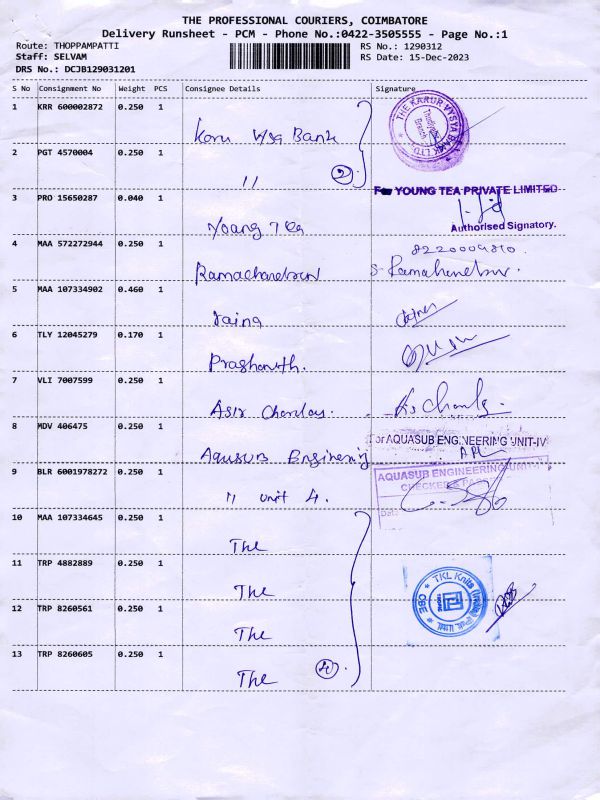 THE PROFESSIONAL COURIERS, COIMBATORE
Delivery Runsheet - PCM - Phone No.:0422-3505555 - Page No.:1
Route: THOPPAMPATTI RS No.: 1290312
Staff: SELVAM RS Date: 15-Dec-2023
DRS No.: DCJB129031201
S No Consignment No Weight PCS Consignee Details Signature
1 KRR 600002872 0.250 1
THE KARUR VYSYA BANK LTD. Branch
2 PGT 4570004 0.250 1
11 2
3 PRO 15650287 0.040 1
For YOUNG TEA PRIVATE LIMITED
Authorised Signatory.
Young Tea
4 MAA 572272944 0.250 1
Ramachandran
5 MAA 107334902 0.460 1
6 TLY 12045279 0.170 1
Prashanth.
7 VLI 7007599 0.250 1
8 MDV 406475 0.250 1
For AQUASUB ENGINEERING UNIT-IV
Aquasub Engineering
9 BLR 6001978272 0.250 1
AQUASUB ENGINEERING UNIT-
11 unit 4.
10 MAA 107334645 0.250 1
The
11 TRP 4882889 0.250 1
The
TKL Knits (India) Pvt. Ltd. CBE
12 TRP 8260561 0.250 1
The
13 TRP 8260605 0.250 1
The 4